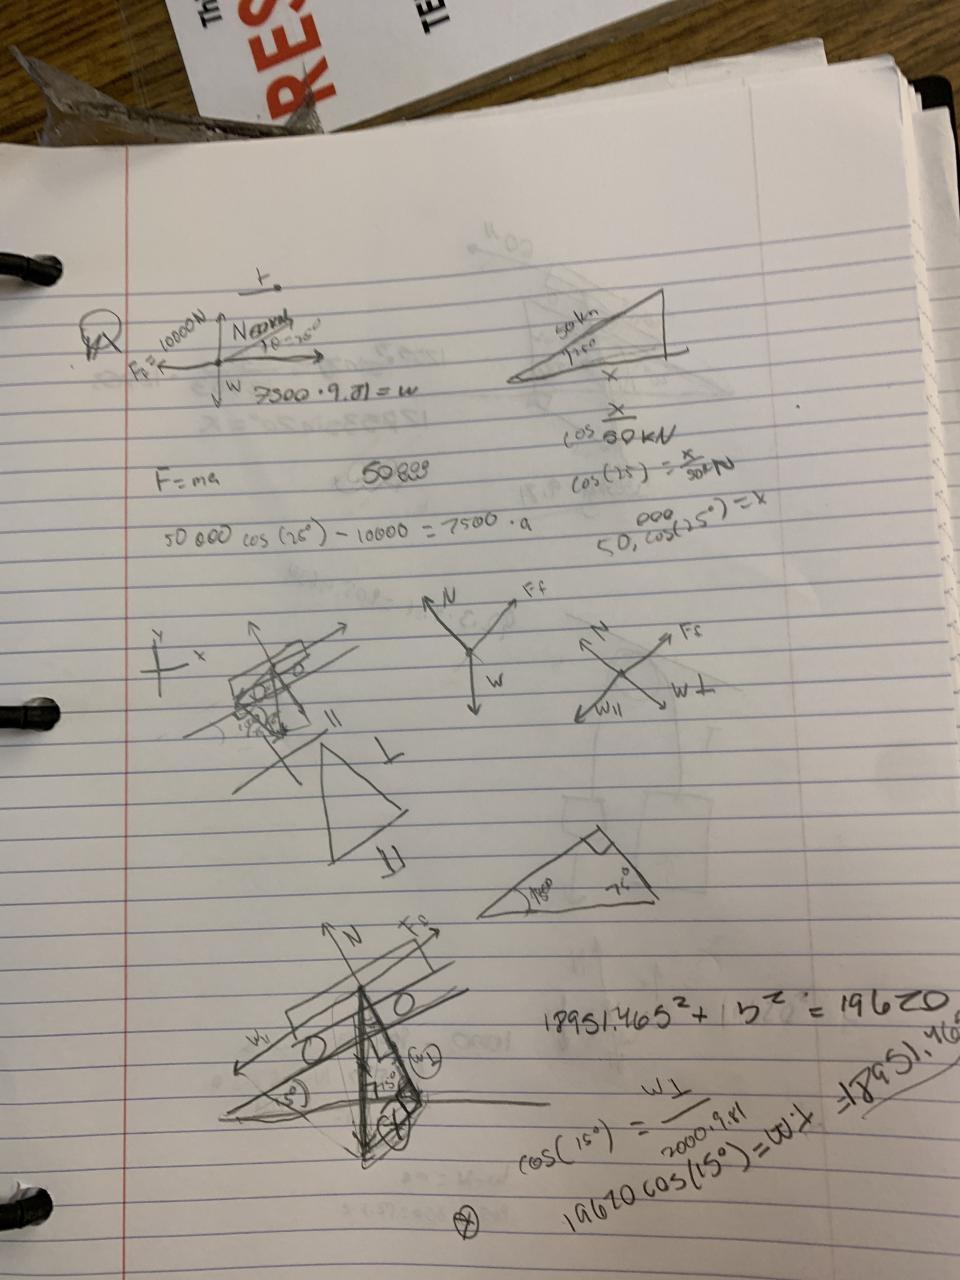 Thi
RES
TE
10000N
N
θ=25°
Ff
W
7500 · 9.81 = w
50kN
25°
x
cos x/50kN
F=ma
cos(25) = x/50kN
50 000 cos(25°) - 10000 = 7500 · a
50,000 cos(25°) = x
Y
x
N
Ff
W
N
Fs
W||
W⊥
||
⊥
||
75°
N
Fs
W||
15°
15°
W⊥
18951.465² + b² = 19620
cos(15°) = W⊥/2000·9.81
19620 cos(15°) = W⊥ = 18951.465